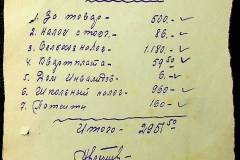 1. За товар - 500.- ✓
2. Налог с тор. - 86.- ✓
3. Сельхоз налог - 1.180.- ✓
4. Квартплата - 59 50 ✓
5. Дом Инвалидов - 6.- ✓
6. Школьный налог - 960 - ✓
7. - 160 - ✓
Итого - 2951 50